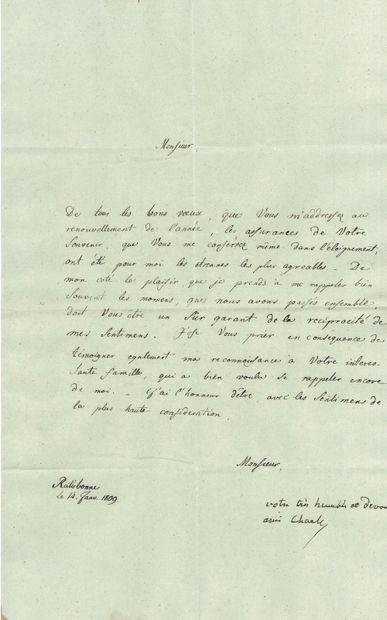 Monsieur.
De tous les bons vœux, que Vous m'addressez au
renouvellement de l'année, les assurances de Votre
Souvenir, que Vous me conservez même dans l'éloignement,
ont été pour moi les étrennes les plus agreables. - De
mon coté le plaisir, que je prends à me rappeler bien
Souvent les momens, que nous avons passés ensemble
doit Vous être un Sûr garant de la reciprocité de
mes Sentimens. J'ose Vous prier en consequence de
temoigner egalement ma reconnoissance à Votre interes-
sante famille, qui a bien voulu se rappeler encore
de moi. - J'ai l'honneur d'être avec les Sentimens de
la plus haute consideration.
Monsieur,
Ratisbonne
le 14. Janv. 1809
votre très humble et devoué
ami Charles